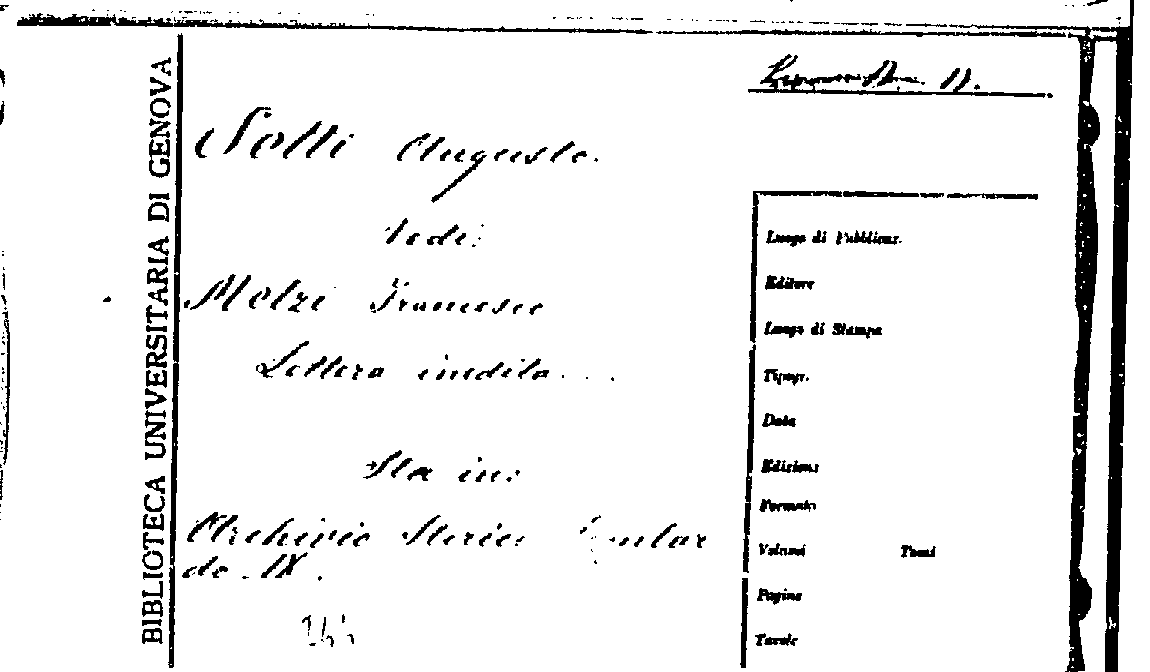 BIBLIOTECA UNIVERSITARIA DI GENOVA
Sotti Augusto.
Vedi:
Melzi Francesco
Lettera inedita...
Sta in:
Archivio Storico Lombar
do IX.
Luogo di Pubblicaz.
Editore
Luogo di Stampa
Tipogr.
Data
Edizione
Formato
Volumi Tomi
Pagine
Tavole